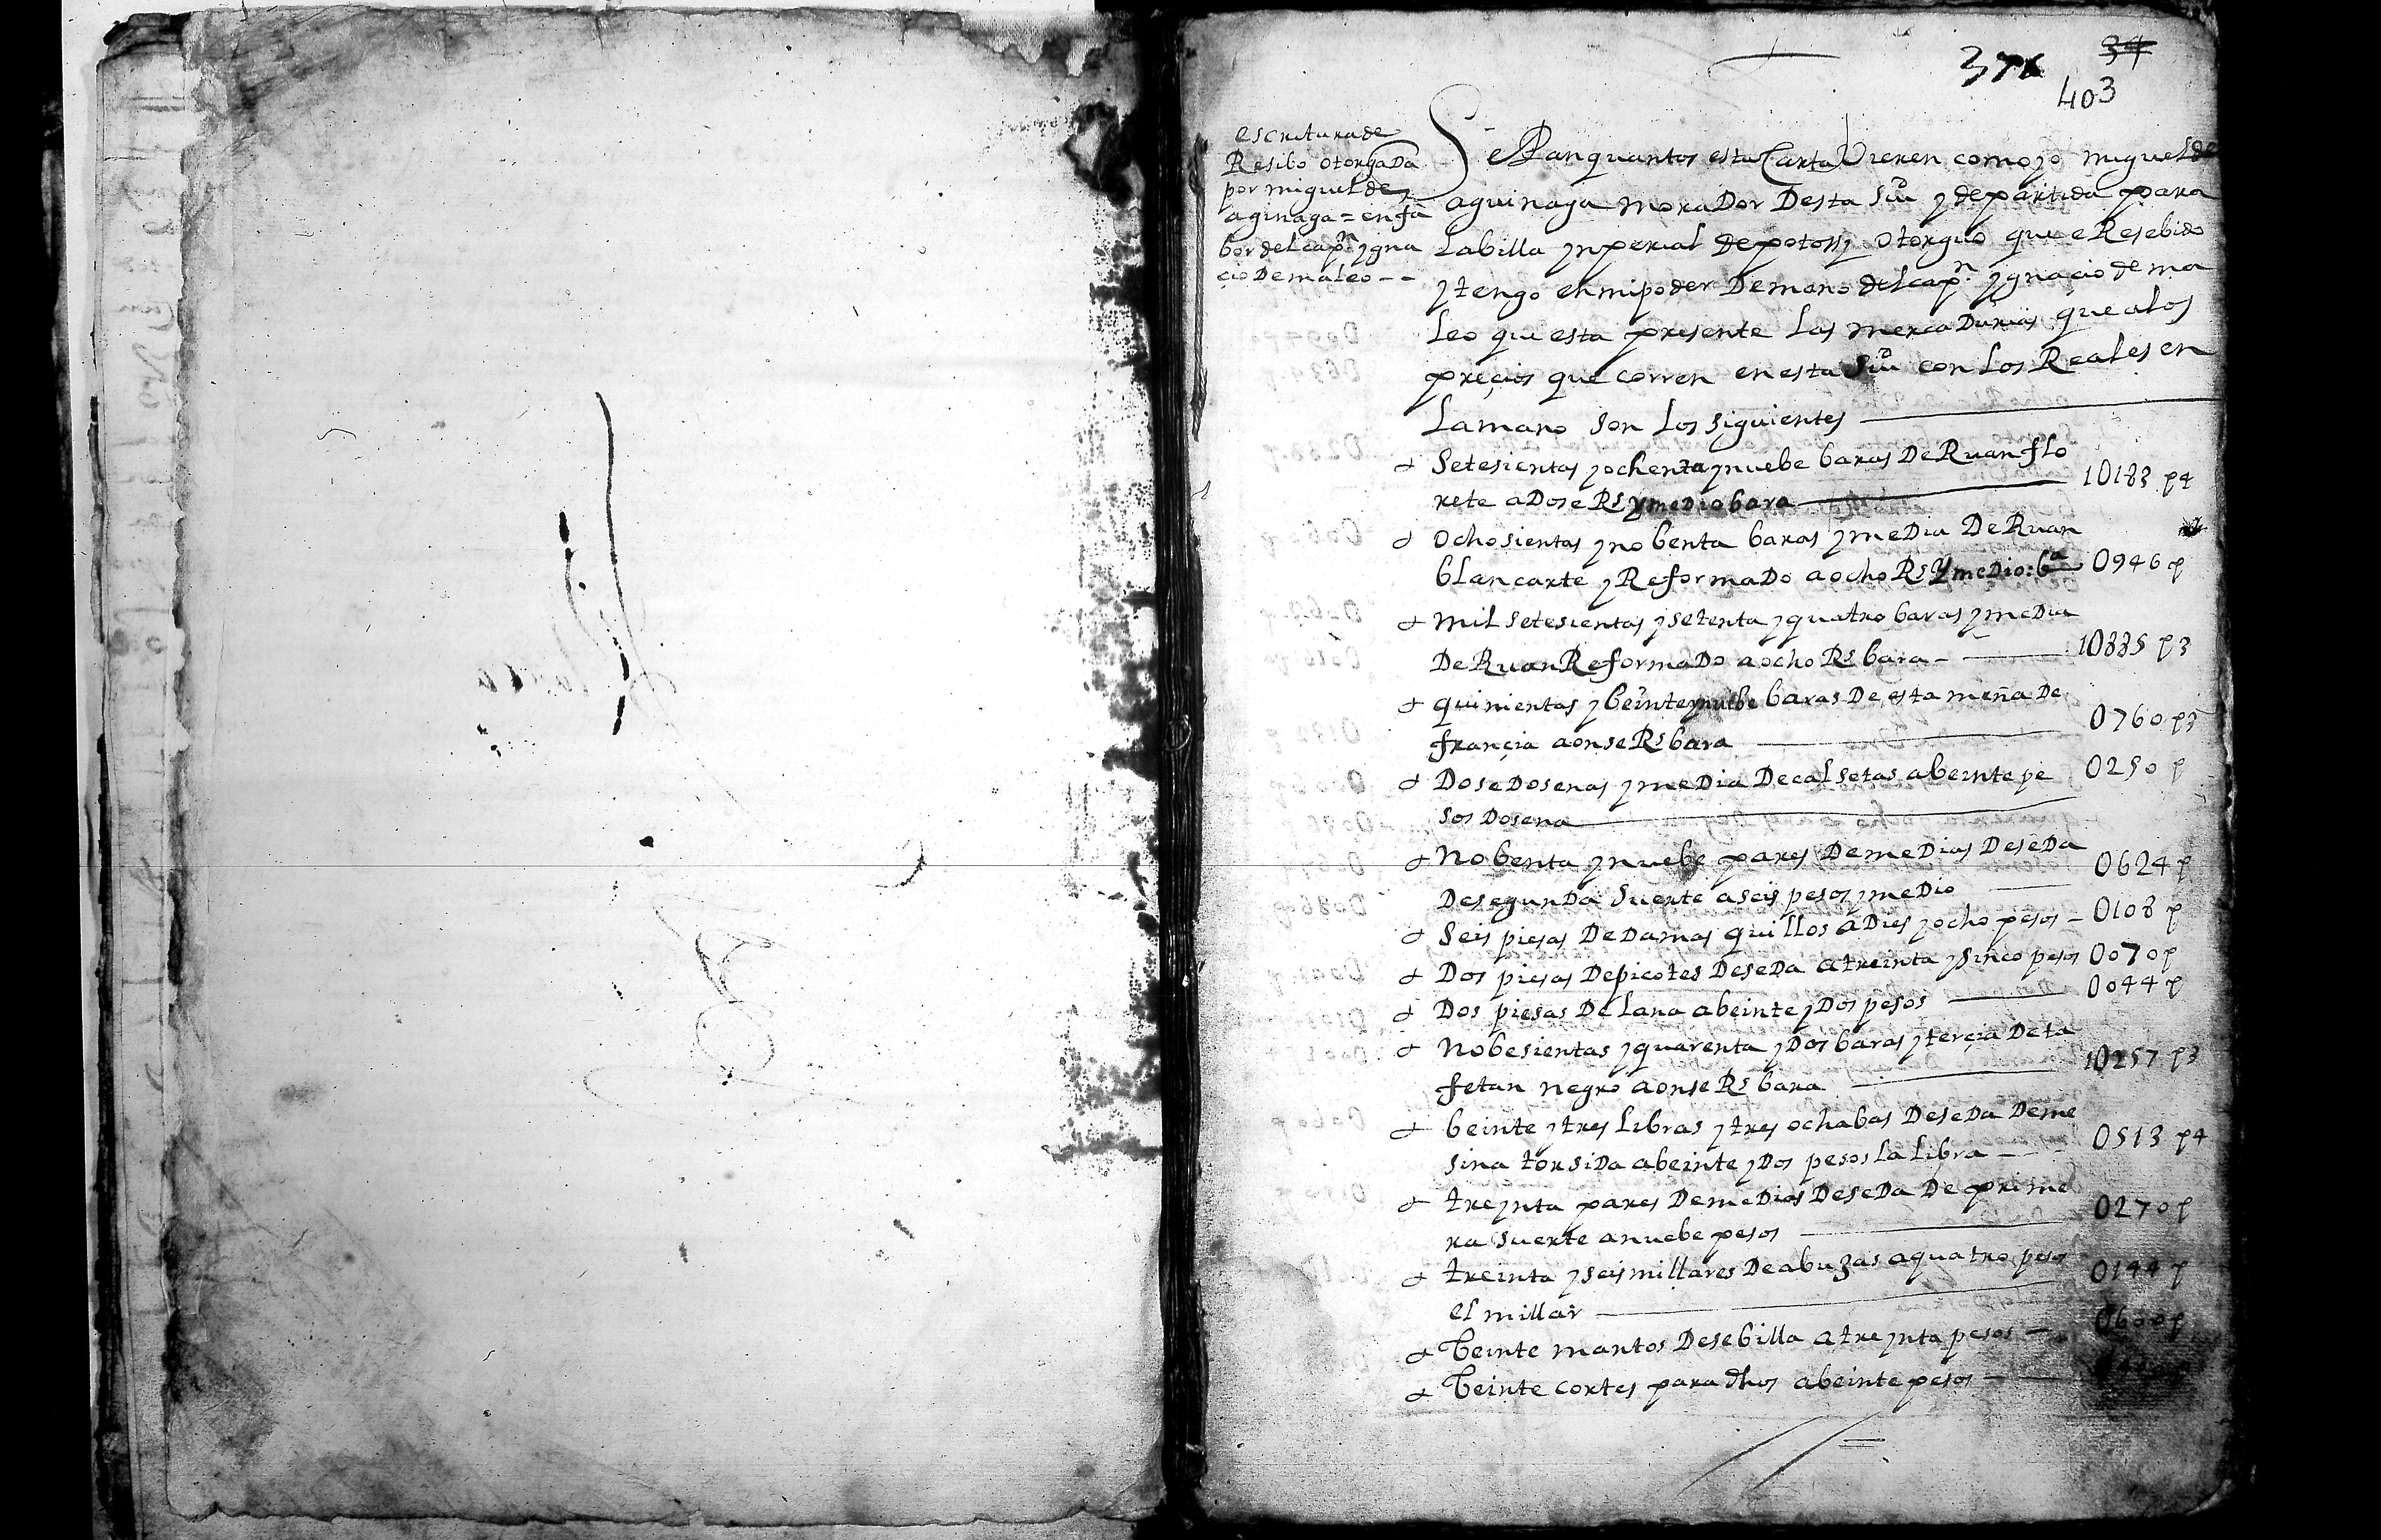 34
376
403
escritura de
Resibo otorgaDa
por miguel de
aginaga = en fa
bor del capn ygna
çio De maleo - -
SeRan quantos esta Carta Vieren como yo miguel de
aguinaga moraDor Desta Siu y de partida para
la billa ynperial de potossi otorguo que e Resebido
y tengo en mi poder De mano del capn ygnaçio de ma
leo que esta presente las mercaDurias que a los
preçios que corren en esta Siu con los Reales en
la mano son los siguientes
Setesientas y ochenta y nuebe baras De Ruan flo
rete a Dose Rs y meDio bara 1U183 p4
ochosientas y nobenta baras y meDia De Ruan
blancarte y ReformaDo a ocho Rs y meDio: ba 0946 p
mil setesientas y setenta y quatro baras y meDia
De Ruan ReformaDo a ocho Rs bara - 1U885 p3
quinientas y beinte y nuebe baras De esta meña De
françia a onse Rs bara 0760 p3
Dose Dosenas y meDia De calsetas a beinte pe 0250 p
sos Dosena
Nobenta y nuebe pares De meDias De seDa
De segunDa Suerte a seis pesos y meDio 0624 p
Seis piesas De Damasquillos a Dies y ocho pesos - 0108 p
Dos piesas De picotes De seDa a treinta y sinco pesos 0070 p
Dos piesas De lana a beinte y Dos pesos 0044 p
Nobesientas y quarenta y Dos baras y terçia De ta
fetan negro a onse Rs bara 1U257 p3
beinte y tres libras y tres ochabas De seDa De me
sina torsiDa a beinte y Dos pesos la libra 0513 p4
treynta pares De meDias De seDa De prime
ra Suerte a nuebe pesos 0270 p
treinta y seis millares De abuzas a quatro pesos 0144 p
el millar
Veinte mantos De sebilla a treynta pesos - 0600 p
Veinte cortes para dhos a beinte pesos -